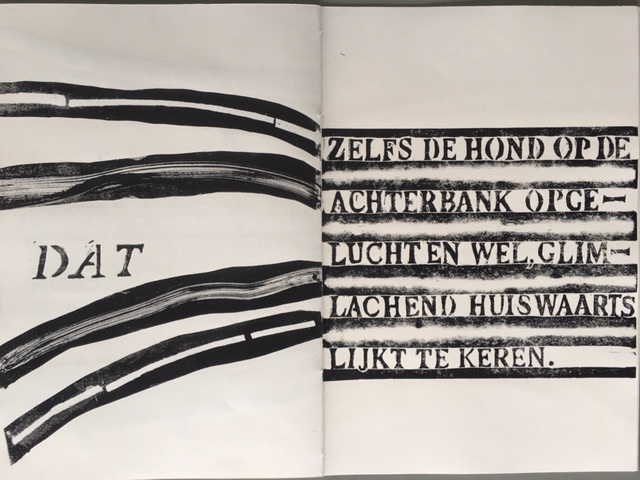 DÁT
ZELFS DE HOND OP DE
ACHTERBANK OPGE-
LUCHT EN WEL, GLIM-
LACHEND HUISWAARTS
LIJKT TE KEREN.